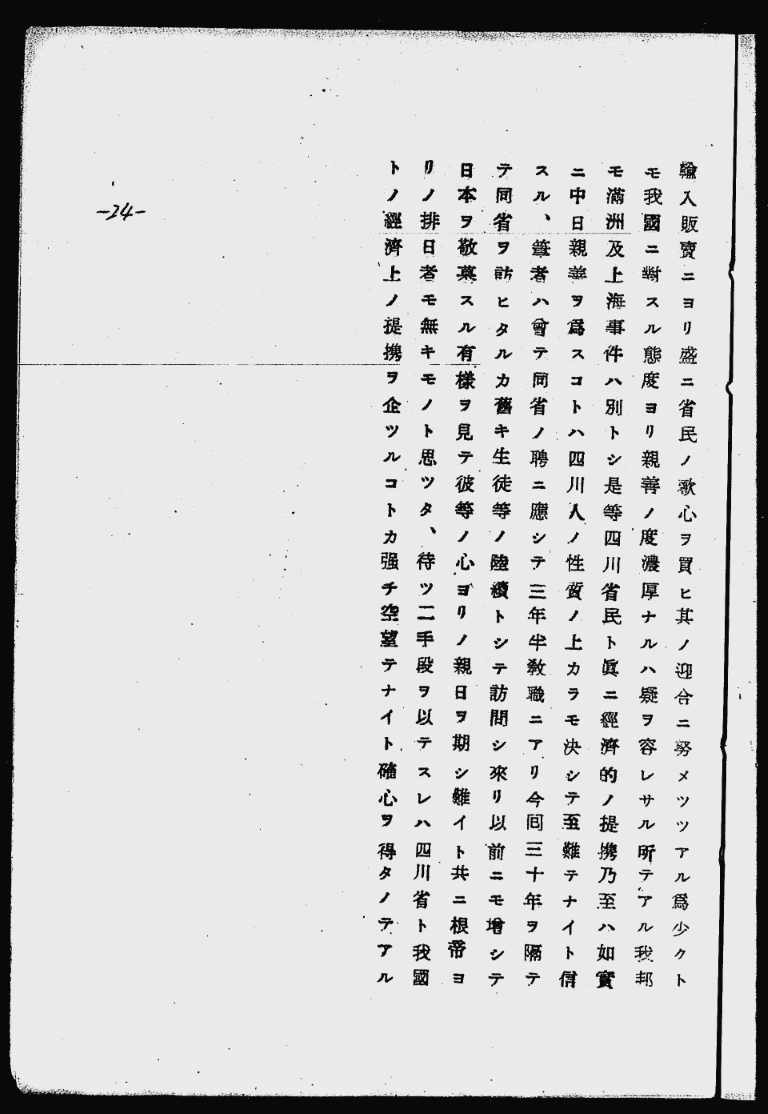 輸入販賣ニヨリ盛ニ省民ノ歓心ヲ買ヒ其ノ迎合ニ努メツツアル爲少クト
モ我國ニ對スル態度ヨリ親善ノ度濃厚ナルハ疑ヲ容レサル所テアル我邦
モ滿洲及上海事件ハ別トシ是等四川省民ト眞ニ經濟的ノ提携乃至ハ如實
ニ中日親善ヲ爲スコトハ四川人ノ性質ノ上カラモ決シテ至難テナイト信
スル、筆者ハ曾テ同省ノ聘ニ應シテ三年半敎職ニアリ今囘三十年ヲ隔テ
テ同省ヲ訪ヒタルカ舊キ生徒等ノ陸續トシテ訪問シ來リ以前ニモ增シテ
日本ヲ敬慕スル有樣ヲ見テ彼等ノ心ヨリノ親日ヲ期シ難イト共ニ根帝ヨ
リノ排日者モ無キモノト思ツタ、待ツニ手段ヲ以テスレハ四川省ト我國
トノ經濟上ノ提携ヲ企ツルコトカ强チ空望テナイト確心ヲ得タノテアル
-24-